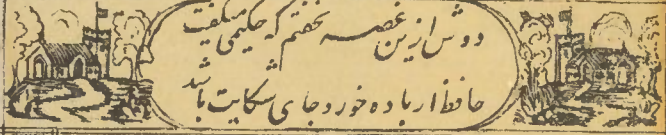 دوش ازین غصه نخفتم که حکیمی میگفت
حافظ ار باده خورد جای شکایت باشد